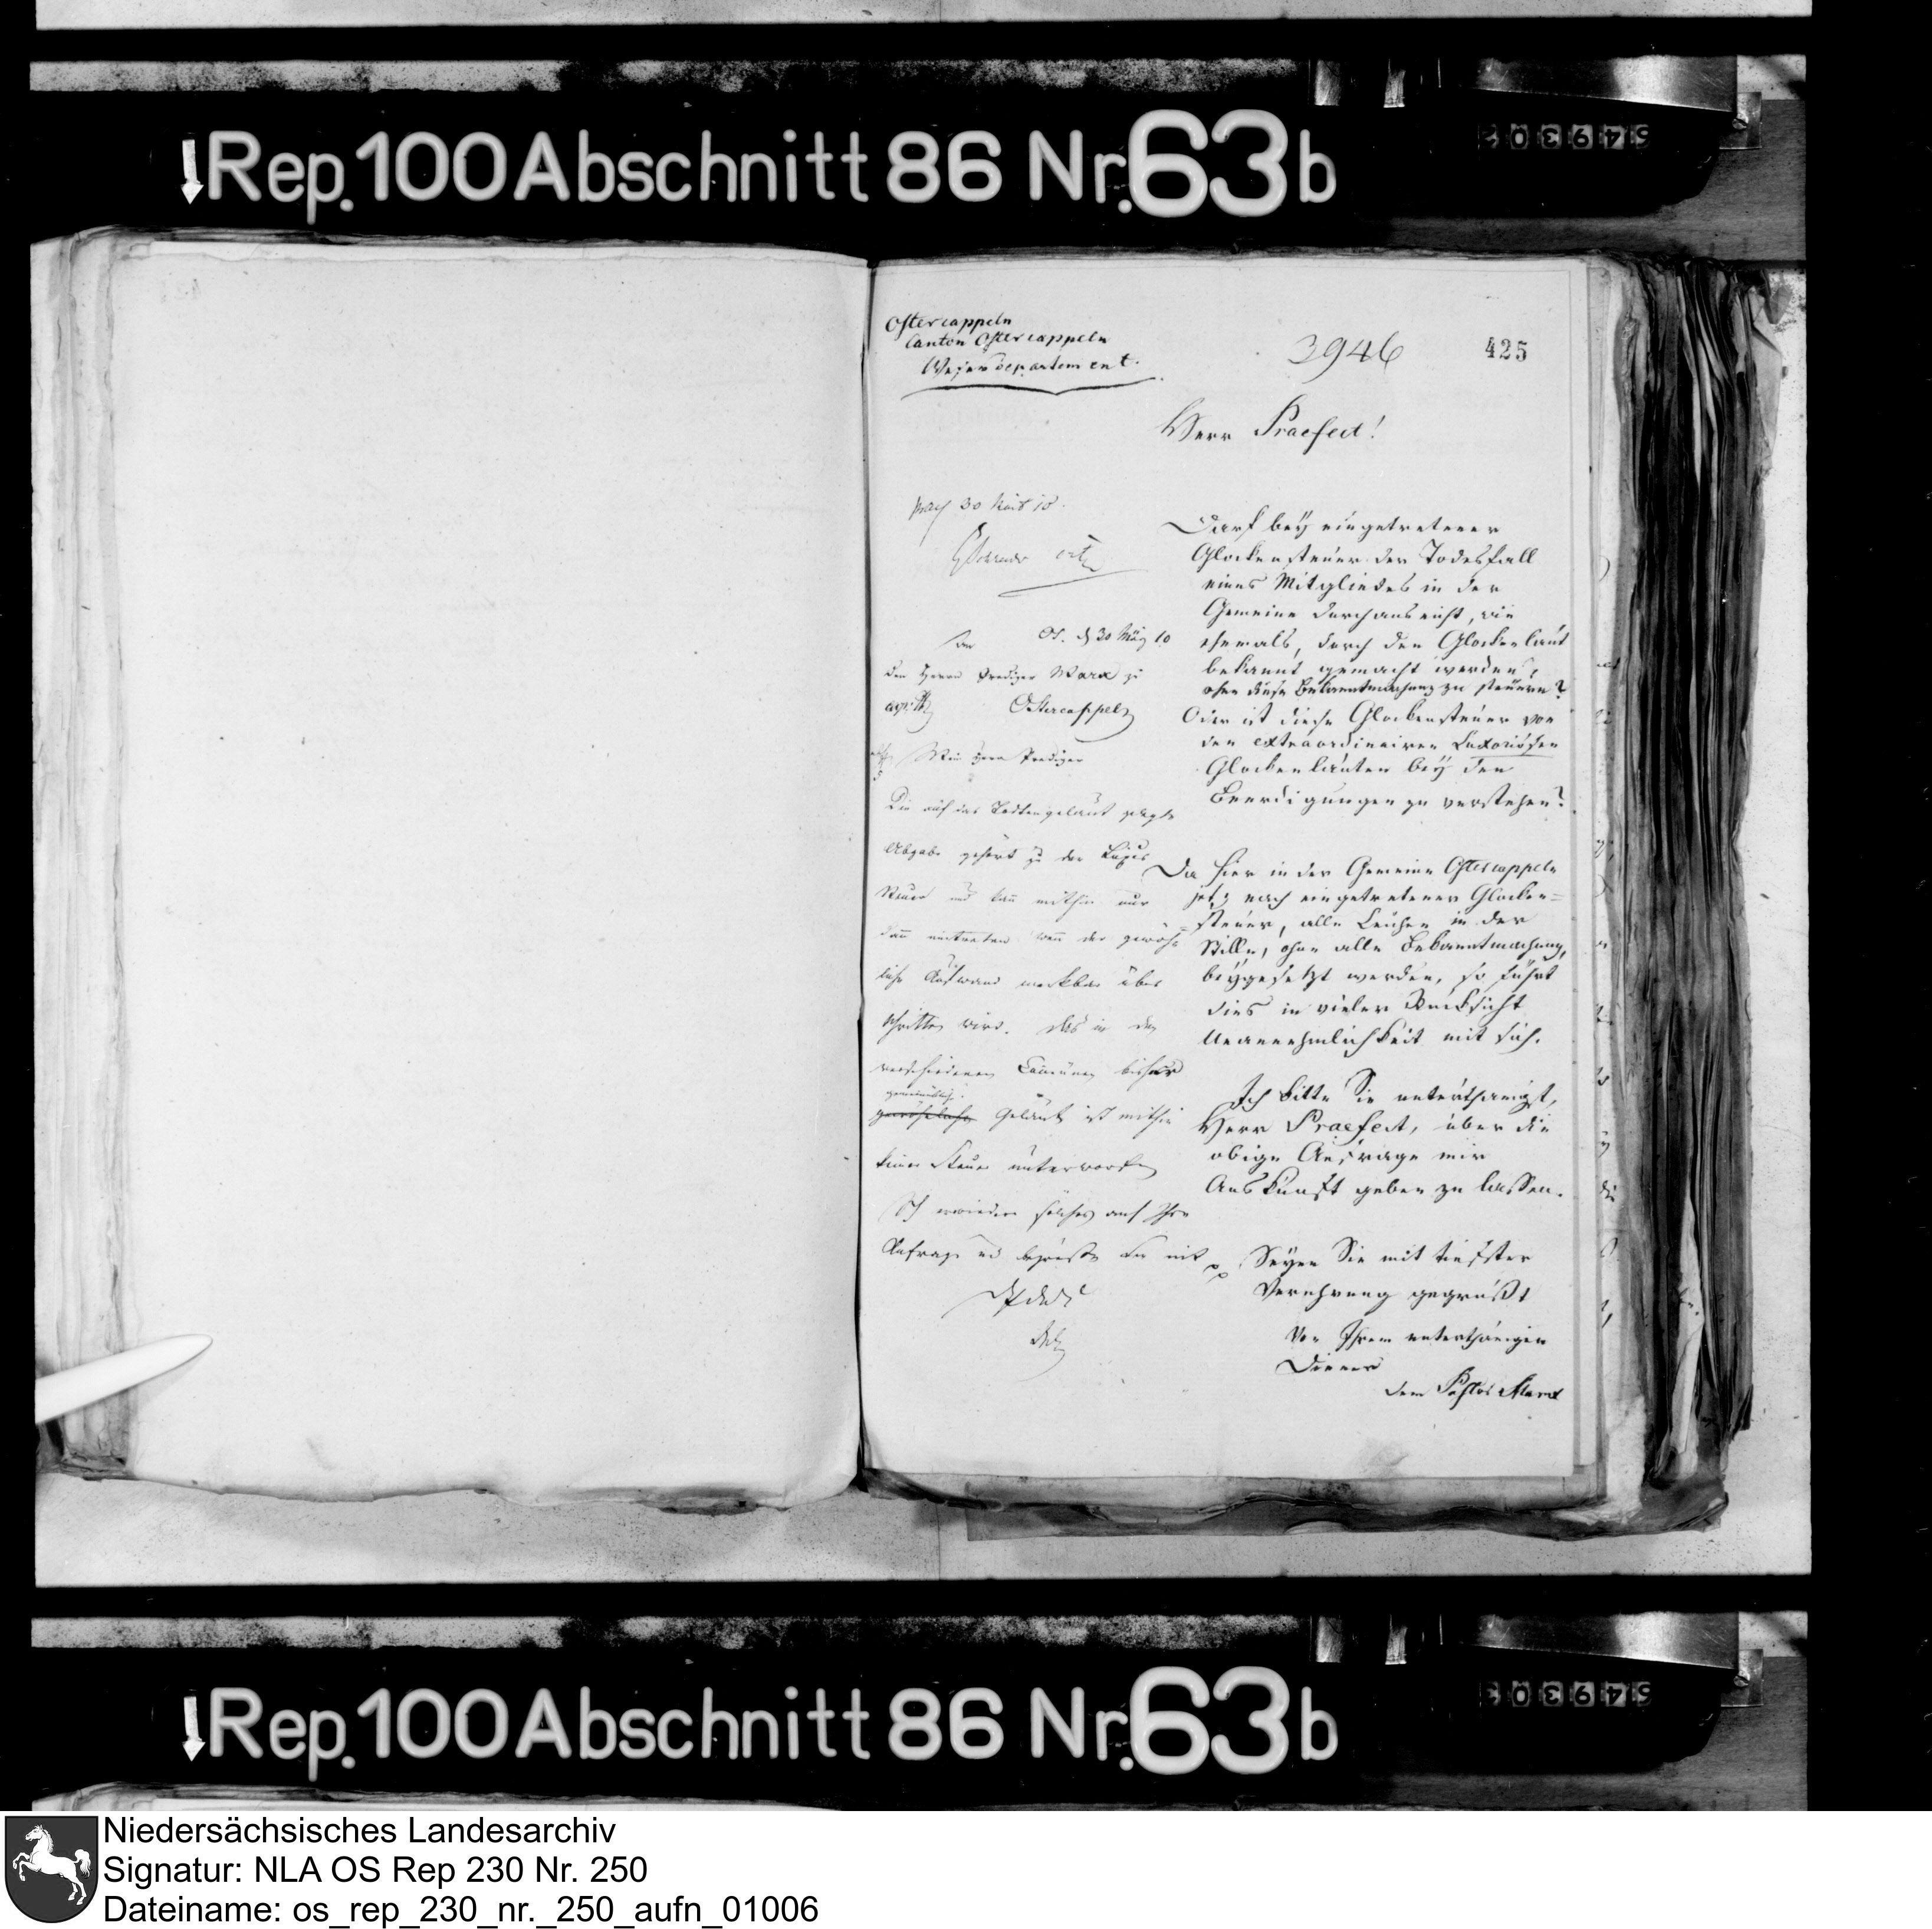 Rep. 100 Abschnitt 86 Nr. 63b
549302
Ostercappeln
Canton Ostercappeln
Weserdepartement.
3946
425
Herr Praefect!
30 März 10.
Os. d 30 März 10
An
den Herrn Prediger Marx zu
Ostercappeln
Mein Herr Prediger
Die auf das Todtengeläut gelegte
Abgabe gehört zu der Luxus
Steuer und kann mithin nur
dann eintreten wenn der gewöhn
liche Aufwand merkbar über
schritten wird. Das in den
verschiedenen Communen bisher
gewöhnliche Geläut ist mithin
keiner Steuer unterworfen
Ich erwiedere solches auf Ihre
Anfrage und begrüße Sie mit
Darf bey eingetretener
Glockensteuer der Todesfall
eines Mitgliedes in der
Gemeine durchaus nicht, wie
ehemals, durch den Glockenlaut
bekannt gemacht werden,
ohne diese Bekanntmachung zu steuern?
Oder ist diese Glockensteuer von
den extraordinairen Luxuriösen
Glockenläuten bey den
Beerdigungen zu verstehen?
Da hier in der Gemeine Ostercappeln
jetz nach eingetretener Glocken=
=steuer, alle Leichen in der
Stille, ohne alle Bekanntmachung,
beygesetzt werden, so führt
dies in vieler Rücksicht
Unannehmlichkeit mit sich.
Ich bitte Sie unterthänigst,
Herr Praefect, über die
obige Anfrage mir
Auskunft geben zu lassen.
Seyen Sie mit tiefster
Verehrung gegrüßt
Von Ihrem unterthänigen
Diener
dem Pastor Marx
Rep. 100 Abschnitt 86 Nr. 63b
549303
Niedersächsisches Landesarchiv
Signatur: NLA OS Rep 230 Nr. 250
Dateiname: os_rep_230_nr._250_aufn_01006